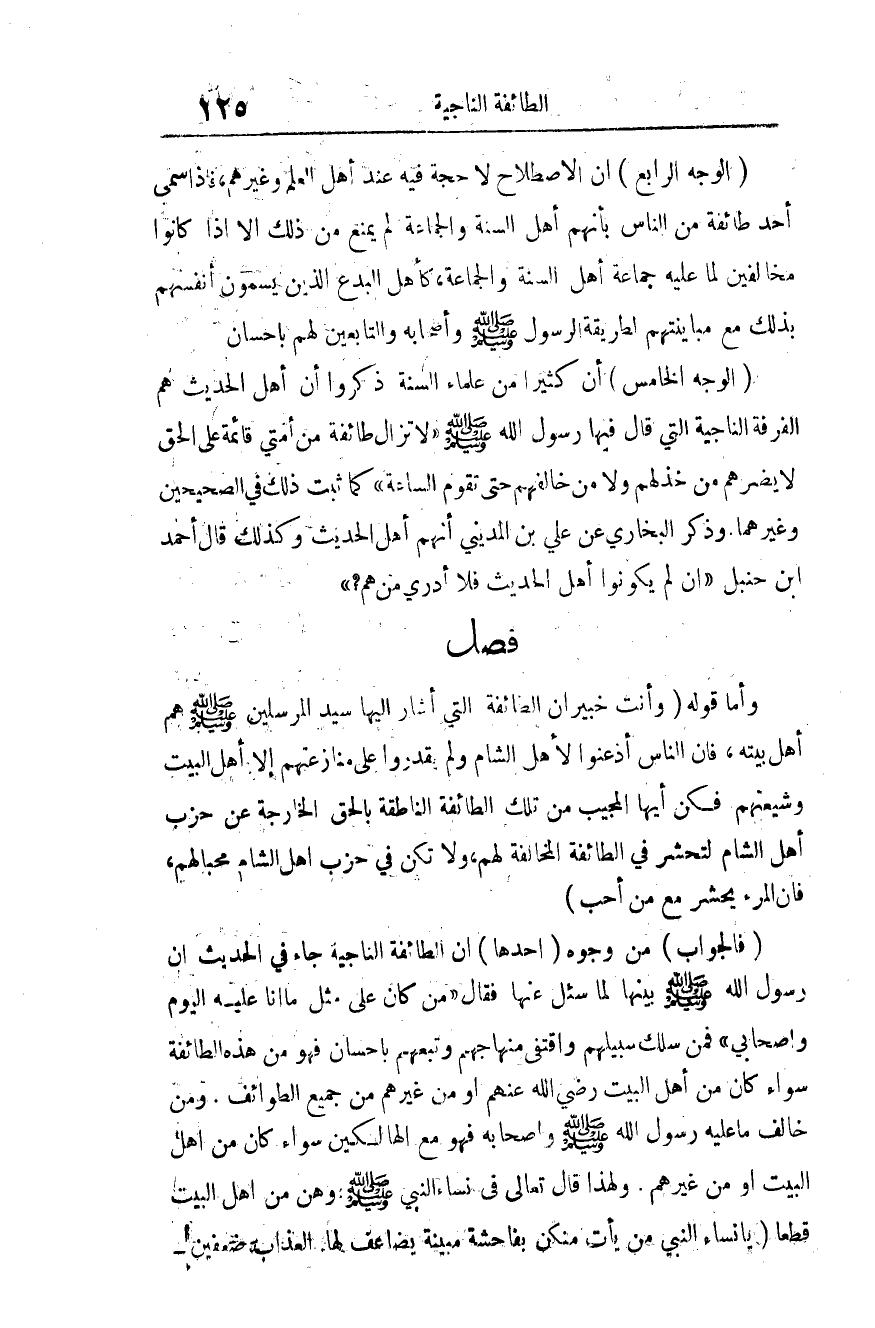 الطائفة الناجية ١٢٥
( الوجه الرابع ) ان الاصطلاح لا حجة فيه عند أهل العلم وغيرهم، فاذا سمى
أحد طائفة من الناس بأنهم أهل السنة والجماعة لم يمنع من ذلك الا اذا كانوا
مخالفين لما عليه جماعة أهل السنة والجماعة، كأهل البدع الذين يسمون أنفسهم
بذلك مع مباينتهم لطريقة الرسول ﷺ وأصحابه والتابعين لهم باحسان
( الوجه الخامس ) أن كثيرا من علماء السنة ذكروا أن أهل الحديث هم
الفرقة الناجية التي قال فيها رسول الله ﷺ «لا تزال طائفة من أمتي قائمة على الحق
لا يضرهم من خذلهم ولا من خالفهم حتى تقوم الساعة» كما ثبت ذلك في الصحيحين
وغيرهما. وذكر البخاري عن علي بن المديني أنهم أهل الحديث وكذلك قال أحمد
ابن حنبل «ان لم يكونوا أهل الحديث فلا أدري من هم؟»
فصل
وأما قوله ( وأنت خبير ان الطائفة التي أشار اليها سيد المرسلين ﷺ هم
أهل بيته ، فان الناس أذعنوا لأهل الشام ولم يقدروا على منازعتهم إلا أهل البيت
وشيعتهم فكن أيها المجيب من تلك الطائفة الناطقة بالحق الخارجة عن حزب
أهل الشام لتحشر في الطائفة المخالفة لهم، ولا تكن في حزب اهل الشام محبا لهم،
فان المرء يحشر مع من أحب )
( فالجواب ) من وجوه ( احدها ) ان الطائفة الناجية جاء في الحديث ان
رسول الله ﷺ بينها لما سئل عنها فقال «من كان على مثل ما انا عليه اليوم
واصحابي» فمن سلك سبيلهم واقتفى منهاجهم وتبعهم باحسان فهو من هذه الطائفة
سواء كان من أهل البيت رضي الله عنهم او من غيرهم من جميع الطوائف . ومن
خالف ما عليه رسول الله ﷺ واصحابه فهو مع الهالكين سواء كان من اهل
البيت او من غيرهم . ولهذا قال تعالى فى نساء النبي ﷺ وهن من اهل البيت
قطعا ( يا نساء النبي من يأت منكن بفاحشة مبينة يضاعف لها العذاب ضعفين ـ